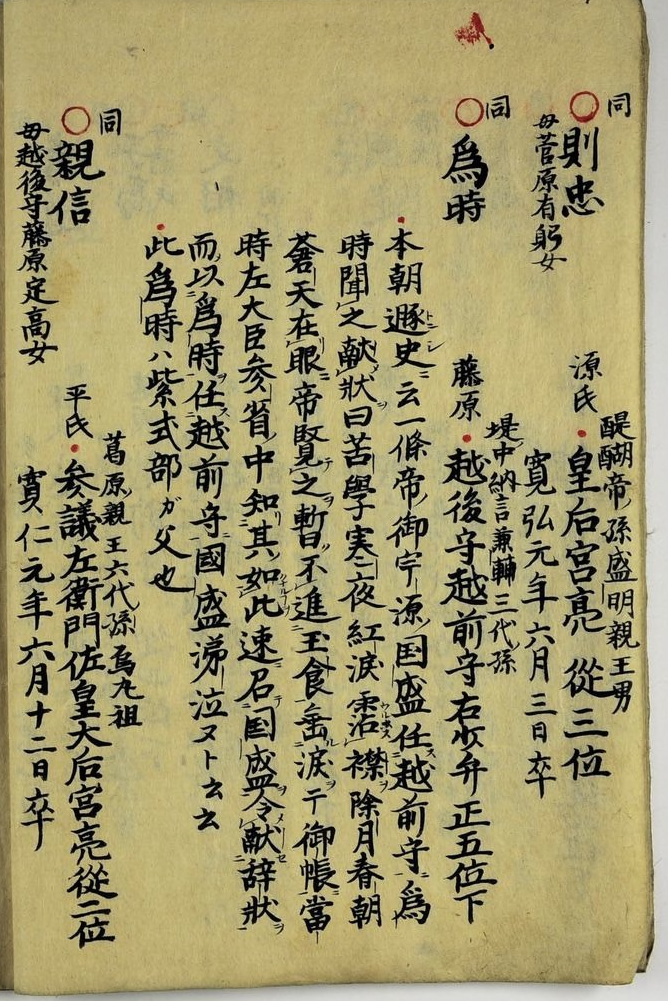 同
則忠
母菅原有躬女
醍醐帝孫盛明親王男
源氏
皇后宮亮 從三位
寛弘元年六月三日卒
同
爲時
堤中納言兼輔三代孫
藤原
越後守越前守右少弁正五位下
本朝遯史ニ云一條帝御宇源国盛任越前守爲
時聞之献狀曰苦學寒夜紅涙霑襟除月春朝
蒼天在眼帝覽之暫不進玉食垂涙于御帳當
時左大臣参省中知其如此速召国盛令献辞狀
而以爲時任越前守國盛涕泣ストムム
此爲時ハ紫式部ガ父也
同
親信
母越後守藤原定高女
葛原親王六代孫烏丸祖
平氏
参議左衛門佐皇大后宮亮從二位
寛仁元年六月十二日卒